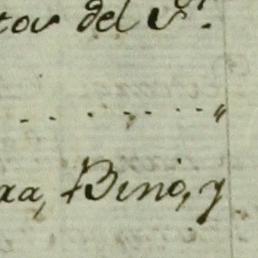 tos del S.r
. . . . . . . "
xa, Bino, y